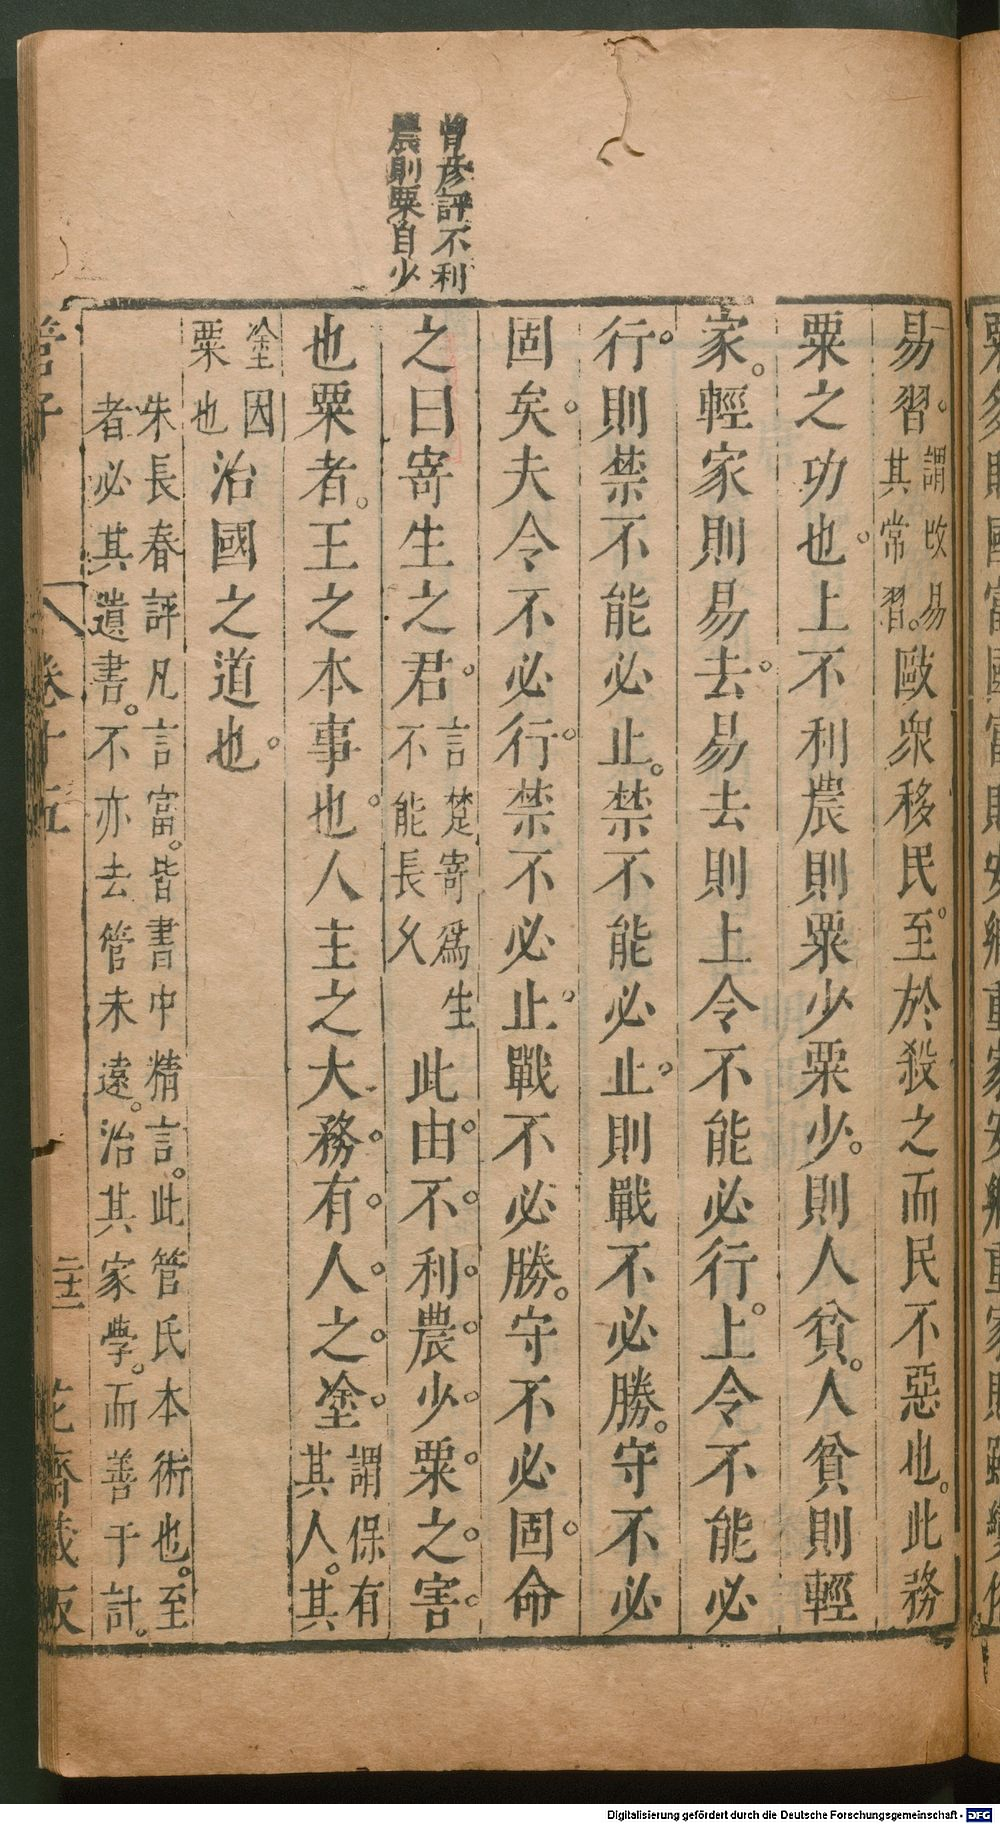 曾彦評不利
農則粟自少
易習。謂改易其常習。歐衆移民。至於殺之而民不惡也。此務
粟之功也。上不利農則粟少粟少。則人貧。人貧則輕
家。輕家則易去。易去則上令不能必行。上令不能必
行。則禁不能必止。禁不能必止。則戰不必勝。守不必
固矣。夫令不必行。禁不必止。戰不必勝。守不必固。命
之曰寄生之君。言楚寄爲生不能長久此由。不。利。農。少。粟。之。害。
也粟者。王之本事也。人主之大務。有。人。之。塗。謂保有其人。其
塗因粟也治國之道也。
朱長春評凡言富。皆書中精言。此管氏本術也。至
者必其遺書。不亦去管未遠。治其家學。而善于計。
管子
卷十五
二十二
花齋藏板
Digitalisierung gefördert durch die Deutsche Forschungsgemeinschaft - DFG